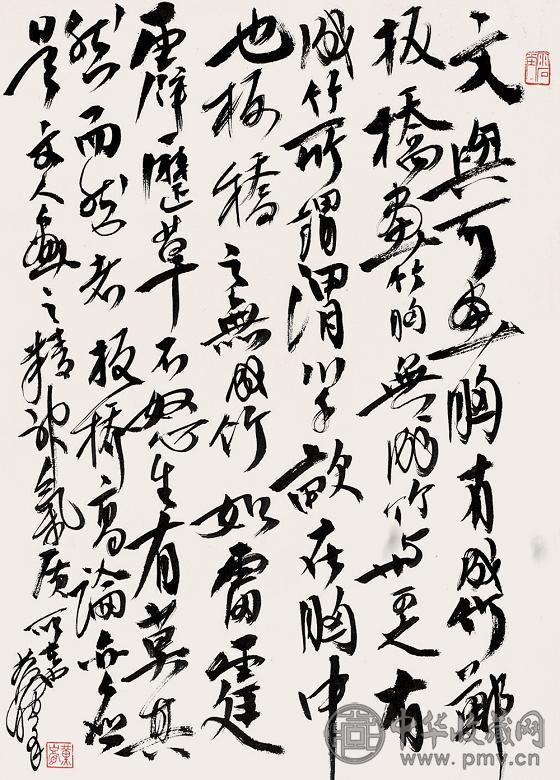 文與可画胸有成竹鄭
板橋畫竹胸無成竹与可之有
成竹所謂渭川千畝在胸中
也板橋之無成竹如雷霆
霹靂草木怒生有莫其
然而然者板橋高論亦
是文人畫之精神氣质所
中华收藏网
www.pmv.cn